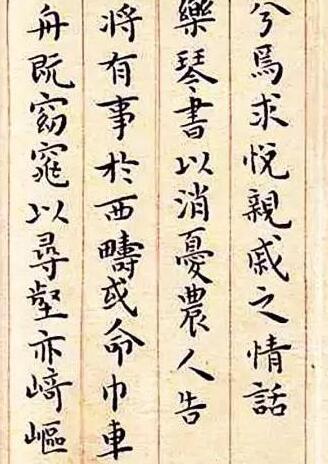 兮焉求悅親戚之情話
樂琴書以消憂農人告
將有事於西疇或命巾車
舟既窈窕以尋壑亦崎嶇